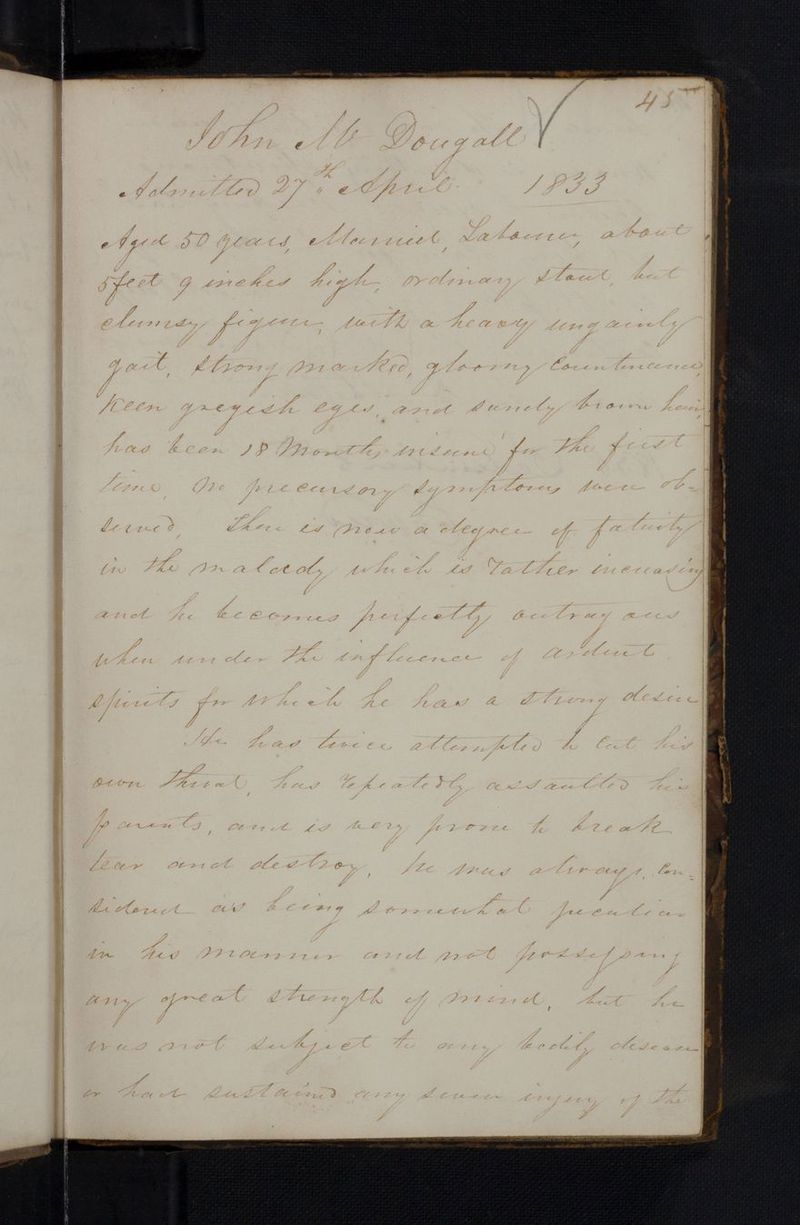 45
John Mc Dougall
Admitted 27th April 1833
Aged 50 years, Married, Labourer, about
5 feet 9 inches high, ordinary stout, but
clumsy figure, with a heavy ungainly
gait, strong marked, gloomy Countenance,
Keen greyish eyes, and sandy brown hair,
has been 18 Months insane for the first
time, no precursory symptoms were ob=
served, There is now a degree of fatuity
in the malady which is rather increasing
and he becomes perfectly outrageous
when under the influence of ardent
spirits for which he has a strong desire
He has twice attempted to Cut his
own throat, has repeatedly assaulted his
parents, and is very prone to break
tear and destroy, he was always Con=
sidered as being somewhat peculiar
in his manner and not possessing
any great strength of mind, but he
was not subject to any bodily disease
or had sustained any severe injury of the